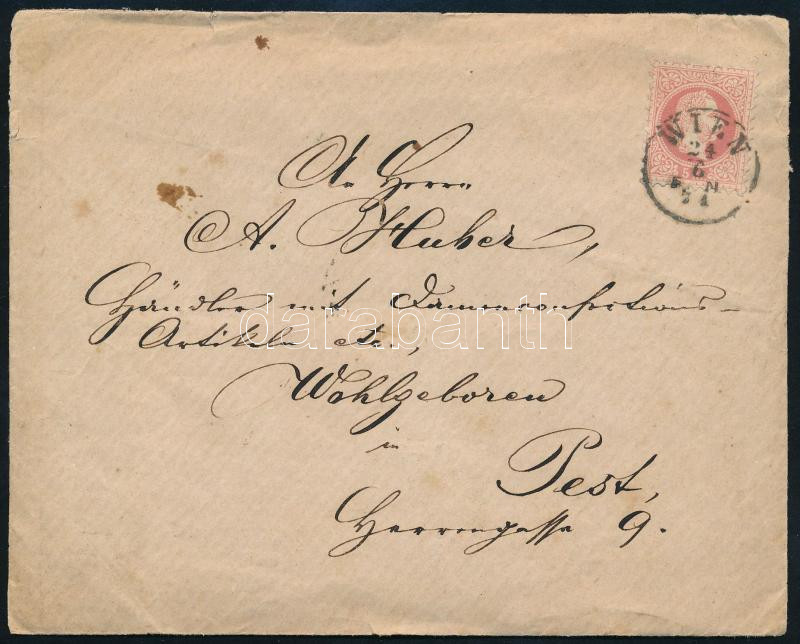 WIEN
24
6
74
An Herrn
A. Huber,
Händler mit Damenconfections-
Artikeln etc.,
Wohlgeboren
in
Pest,
Herrengasse 9.
darabanth